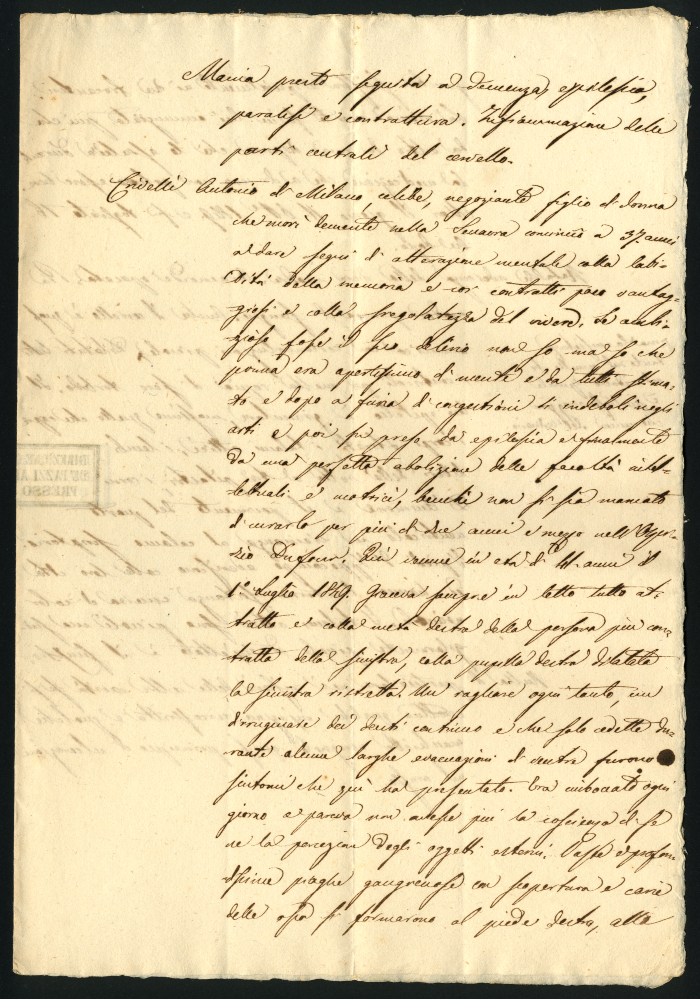 Mania presto seguita a demenza, epilessia,
paralisi e contrattura. Infiammazione delle
parti centrali del cervello.
Crivelli Antonio di Milano, celibe, negoziante figlio di donna
che morì demente nella Senavra cominciò a 37 anni
a dare segni di alterazione mentale colla labi-
lità della memoria e coi contratti poco vantag-
giosi e colla sregolatezza del vivere. Se ambi-
zioso fosse il suo delirio non so ma so che
prima era apertissimo di mente e da tutti stima-
to e dopo a furia di congestioni si indebolì negli
arti e poi fu preso da epilessia e finalmente
da una perfetta abolizione delle facoltà intel-
lettuali e motrici, benchè non si sia mancato
di curarlo per più di due anni e mezzo nell'Ospi-
zio Dufour. Qui venne in età di 41 anni il
1° Luglio 1849. Giaceva sempre in letto tutto at-
tratto e colla metà destra della persona più con-
tratta della sinistra, colla pupilla destra dilatata
la sinistra ristretta. Un ragliare ogni tanto, un
dirruginare dei denti continuo e che solo cedette du-
rante alcune larghe evacuazioni di ventre furono
sintomi che quì ha presentato. Era imboccato ogni
giorno e pareva non avesse più la coscienza di se
ne la percezione degli oggetti esterni. Vaste e profon-
dissime piaghe gangrenose con scopertura e carie
delle ossa si formarono al piede destro, alla